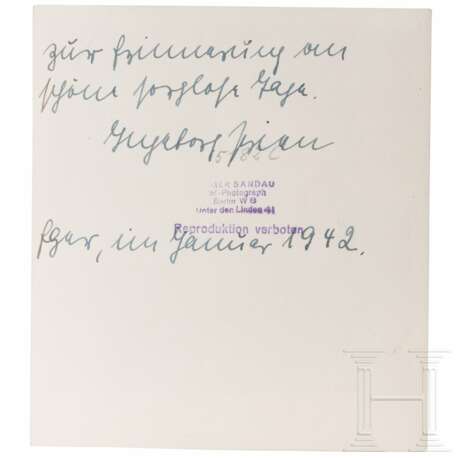 zur Erinnerung an
schöne sorglose Tage.
Ingeborg Prien
SANDAU
Photograph
Berlin W 8
Unter den Linden
Reproduktion verboten
Eger, im Januar 1942.
H